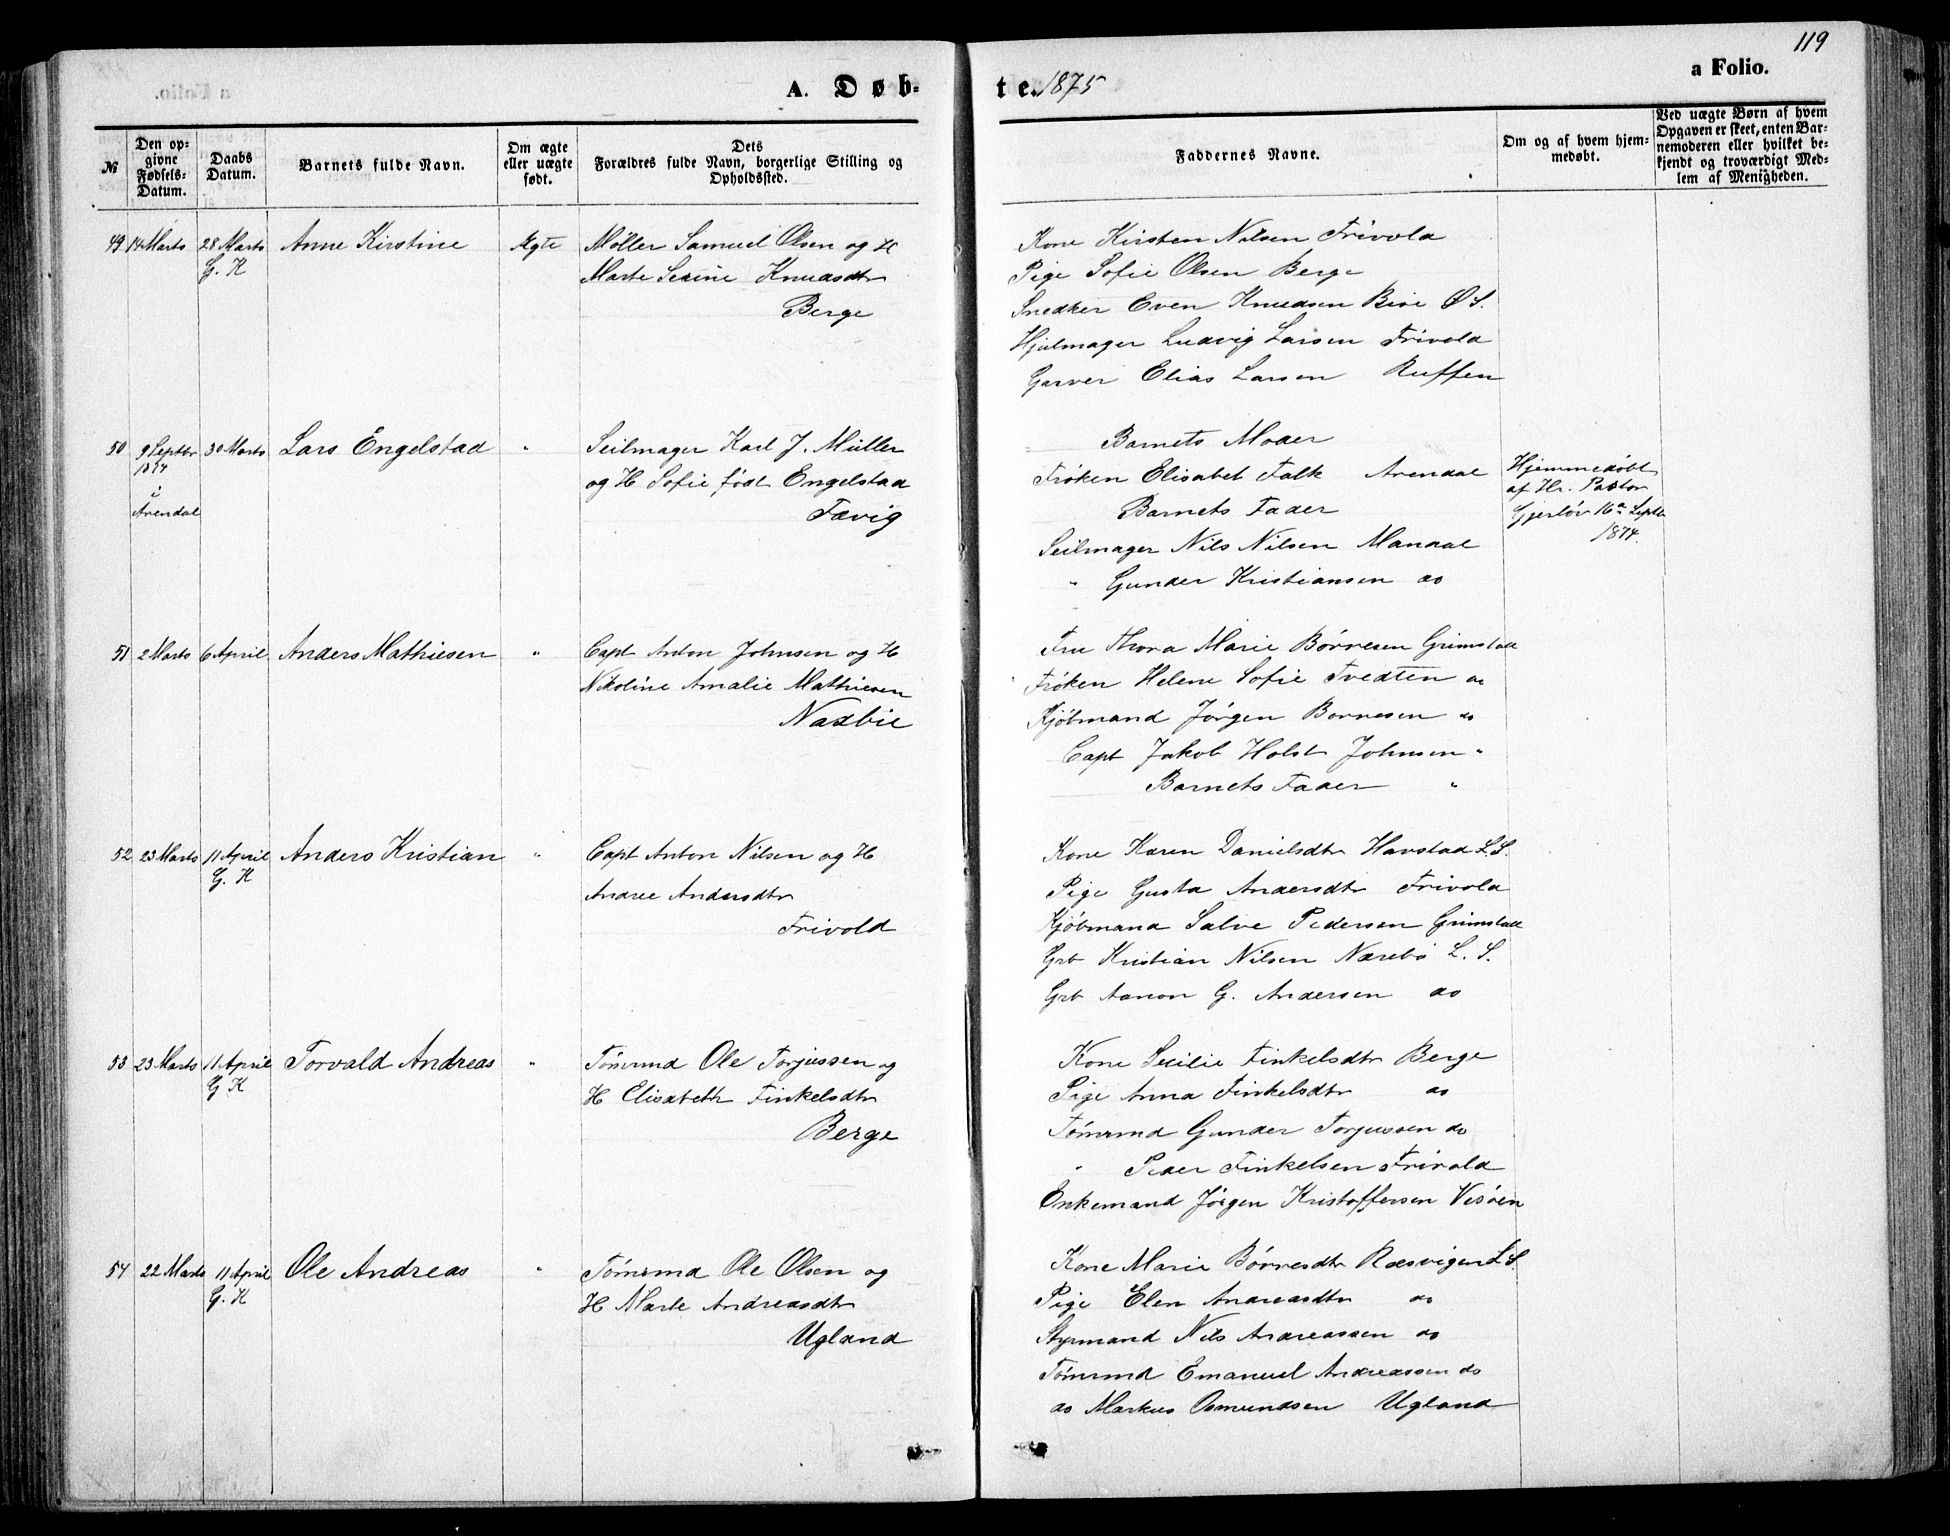 119
a Folio.
A. Døb-
te. 1875
№
Den opgivne Fødsels-Datum.
Daabs Datum.
Barnets fulde Navn.
Om ægte eller uægte født.
Dets Forældres fulde Navn, borgerlige Stilling og Opholdssted.
Faddernes Navne.
Om og af hvem hjemmedøbt.
Ved uægte Børn af hvem Opgaven er skeet, enten Barnemoderen eller hvilket bekjendt og troværdigt Medlem af Menigheden.
49 14 Marts 28 Marts Anne Kirstine Ægte Møller Samuel Olsen og H
G. K Marte Serine Knudsdtr
Berge
Kone Kirsten Nilsen Frivold
Pige Sofie Olsen Berge
Snedker Even Knudsen Bie Ø S.
Hjulmager Ludvig Larsen Frivold
Garver Elias Larsen Ruffen
50 9 Septbr 30 Marts Lars Engelstad " Seilmager Karl J. Müller
1874 og H Sofie født Engelstad
i
Arendal Fævig
Barnets Moder
Frøken Elisabet Falk Arendal
Barnets Fader
Seilmager Nils Nilsen Mandal
" Gunder Kristiansen do
Hjemmedøbt
af Hr. Pastor
Gjerløv 16de Septbr
1874.
51 2 Marts 6 April Anders Mathiesen " Capt Anton Johnsen og H
Nikoline Amalie Mathiesen
Naxbie
Fru Thora Marie Børresen Grimstad
Frøken Helene Sofie Tvedten do
Kjøbmand Jørgen Børresen do
Capt Jakob Holst Johnsen "
Barnets Fader "
52 23 Marts 11 April Anders Kristian " Capt Anton Nilsen og H
G. K Andree Andersdtr
Frivold
Kone Karen Danielsdtr Havstad L.S.
Pige Gusta Andersdtr Frivold
Kjøbmand Salve Pedersen Grimstad
Grb Kristian Nilsen Nærebø L. S.
Grb Aanon G. Andersen do
53 23 Marts 11 April Torvald Andreas " Tømrmd Ole Torjussen og
G K H Elisabeth Finkelsdtr
Berge
Kone Secilie Finkelsdtr Berge
Pige Anna Finkelsdtr do
Tømrmd Gunder Torjussen do
" Peder Finkelsen Frivold
Enkemand Jørgen Kristoffersen Vesøen
54 22 Marts 11 April Ole Andreas " Tømrmd Ole Olsen og
G. K H Marte Andreasdtr
Ugland
Kone Marie Børresdtr Ræsvigen L S.
Pige Elen Andreasdtr do
Styrmand Nils Andreassen do
Tømrmd Emanuel Andreassen do
do Markus Osmundsen Ugland